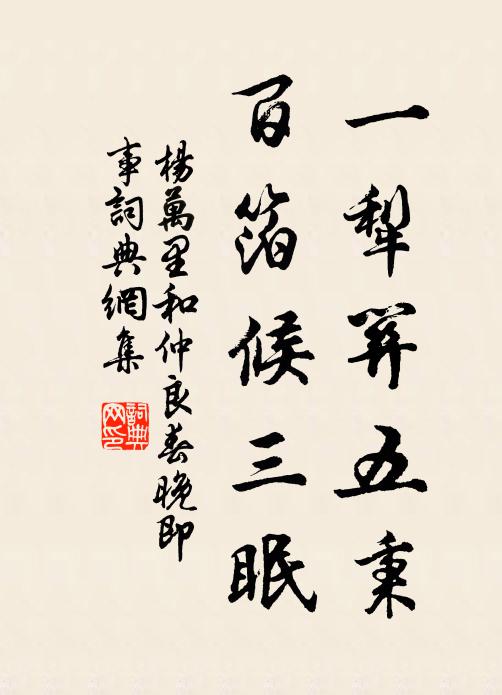 一犁關五秉
百箔候三眠
楊萬里和仲良春晚即
事詞典網集
詞典网印